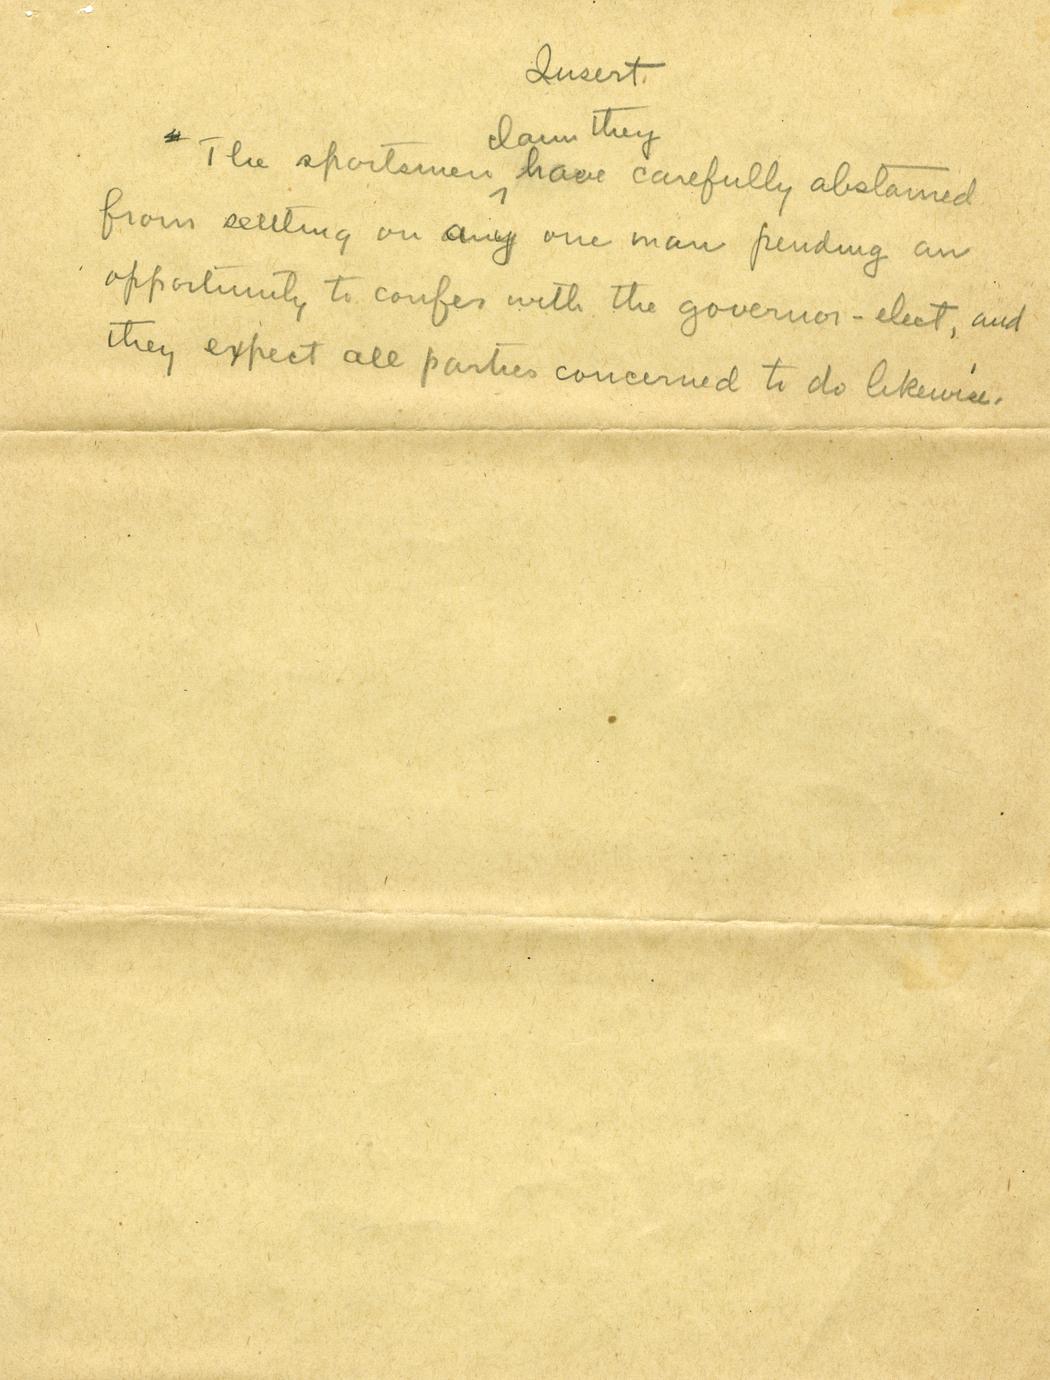 Insert.
claim they
" The sportsmen ^ have carefully abstained
from settling on any one man pending an
opportunity to confer with the governor-elect, and
they expect all parties concerned to do likewise.